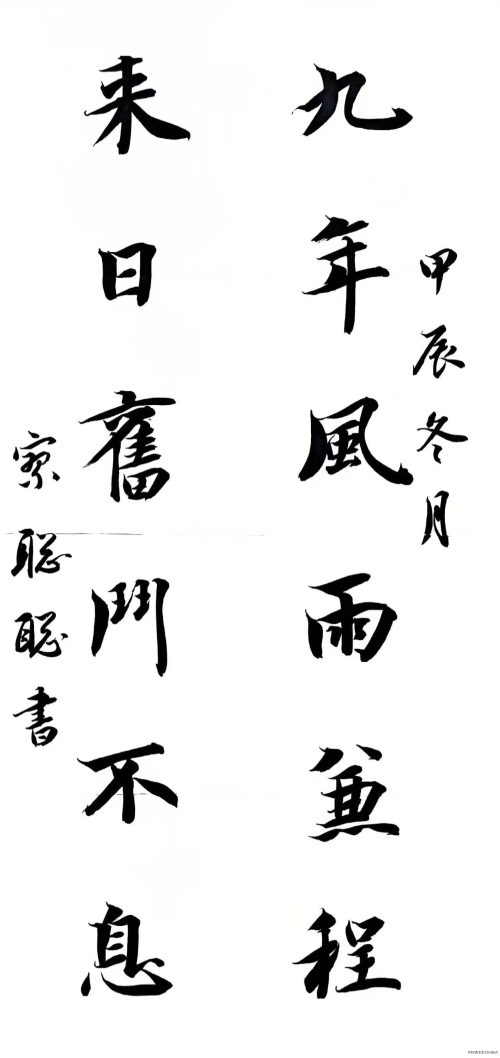 甲辰冬月
九年風雨兼程
来日奮鬥不息
聪聪書
POWERCHINA